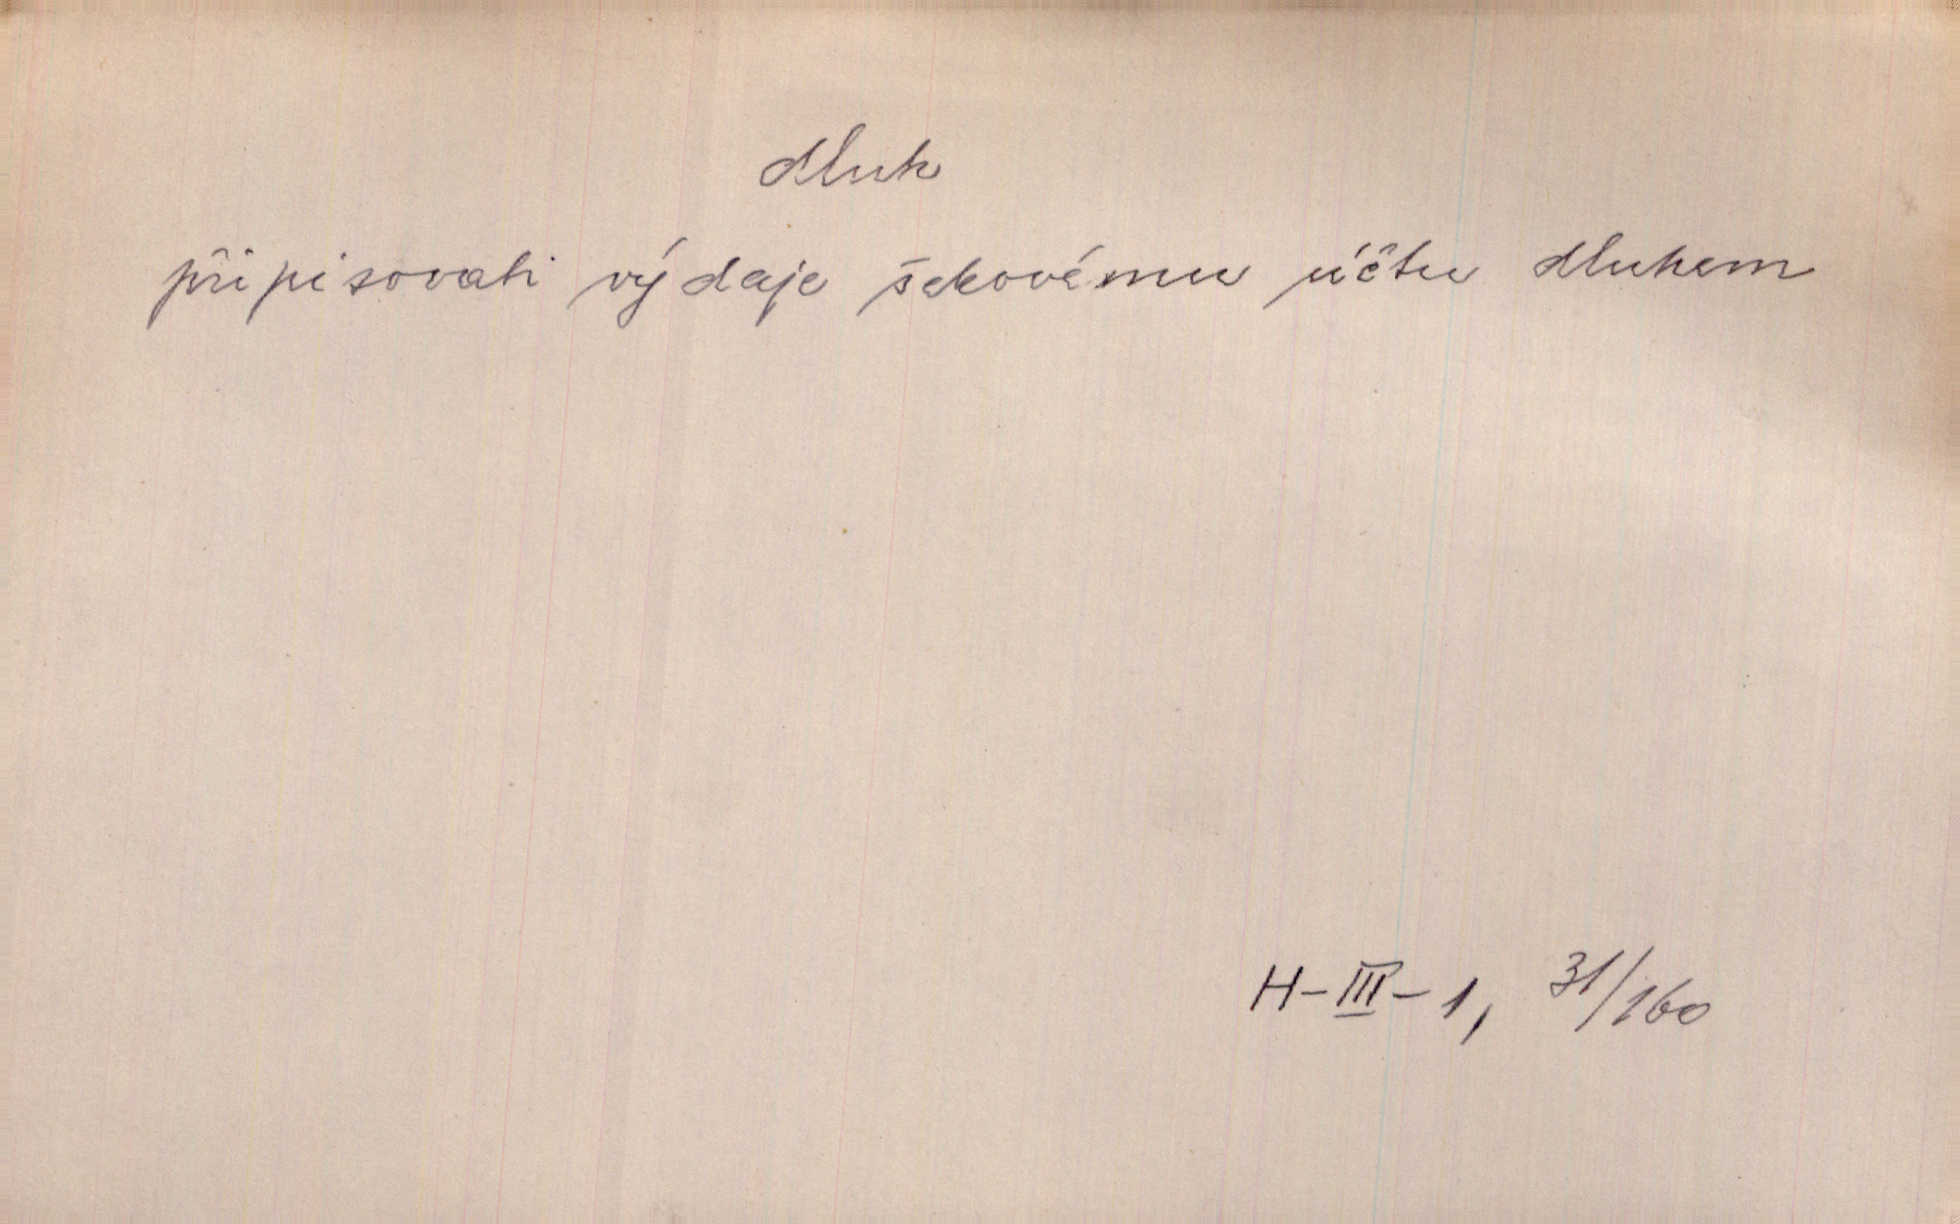 dluh
připisovati výdaje šekovému účtu dluhem
H-III-1, 31/160